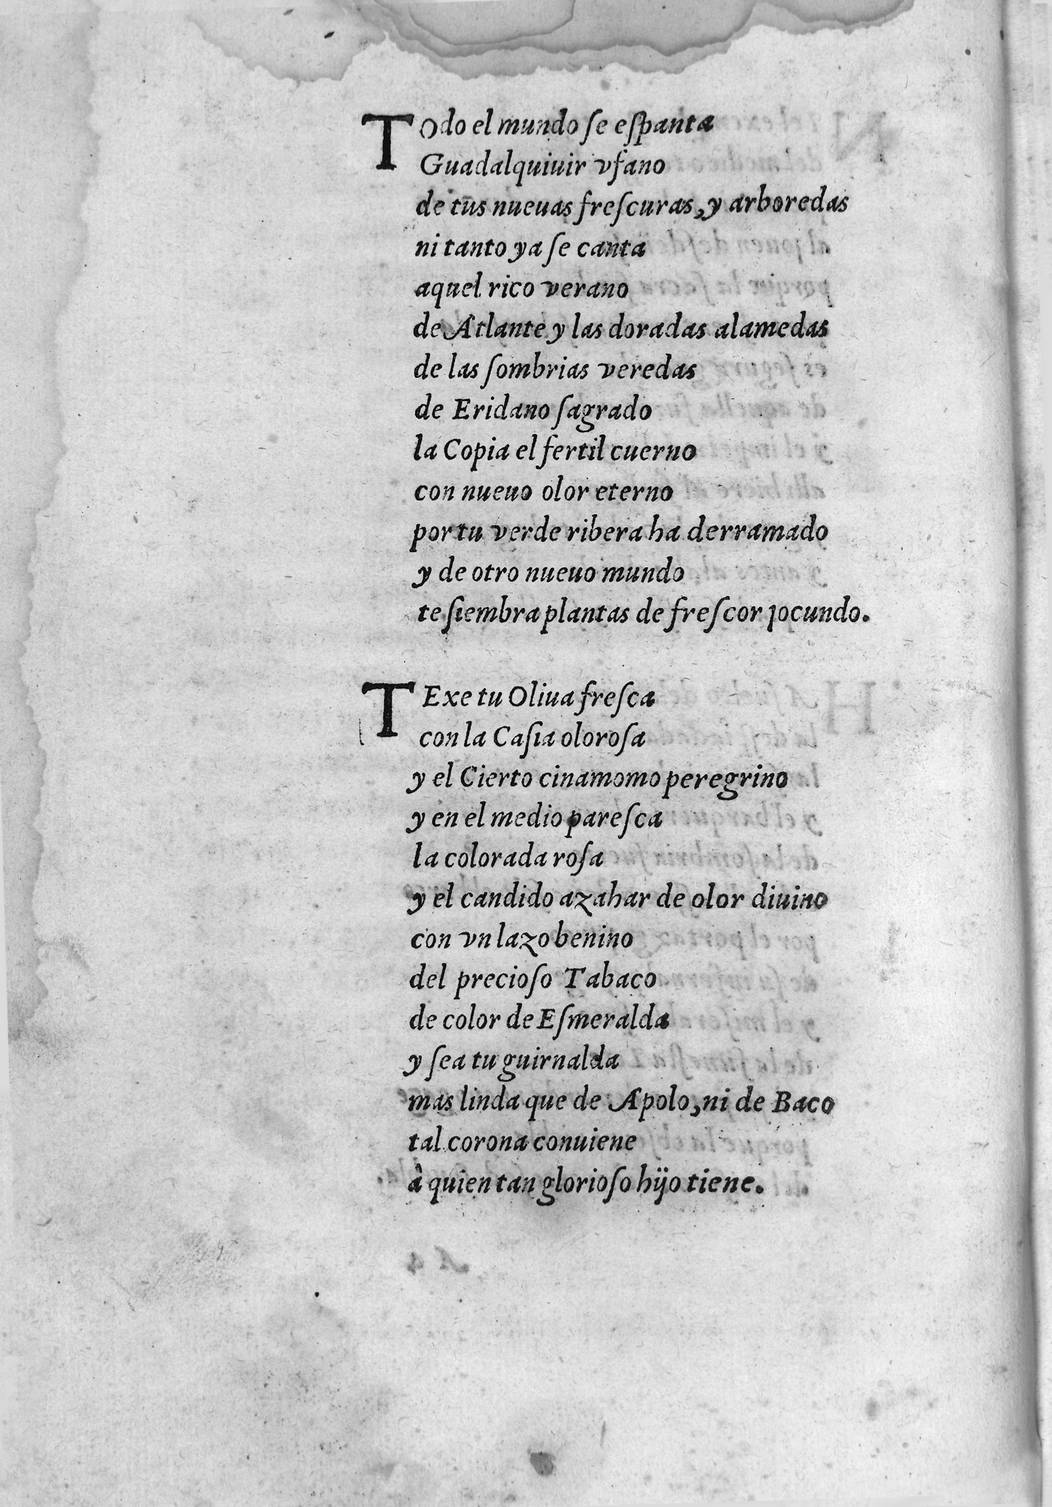 TOdo el mundo ſe eſpanta
Guadalquiuir vfano
de tus nueuas freſcuras, y arboredas
ni tanto ya ſe canta
aquel rico verano
de Atlante y las doradas alamedas
de las ſombrias veredas
de Eridano ſagrado
la Copia el fertil cuerno
con nueuo olor eterno
por tu verde ribera ha derramado
y de otro nueuo mundo
te ſiembra plantas de freſcor jocundo.
TExe tu Oliua freſca
con la Caſia oloroſa
y el Cierto cinamomo peregrino
y en el medio pareſca
la colorada roſa
y el candido azahar de olor diuino
con vn lazo benino
del precioſo Tabaco
de color de Eſmeralda
y ſea tu guirnalda
mas linda que de Apolo, ni de Baco
tal corona conuiene
à quien tan glorioſo hijo tiene.